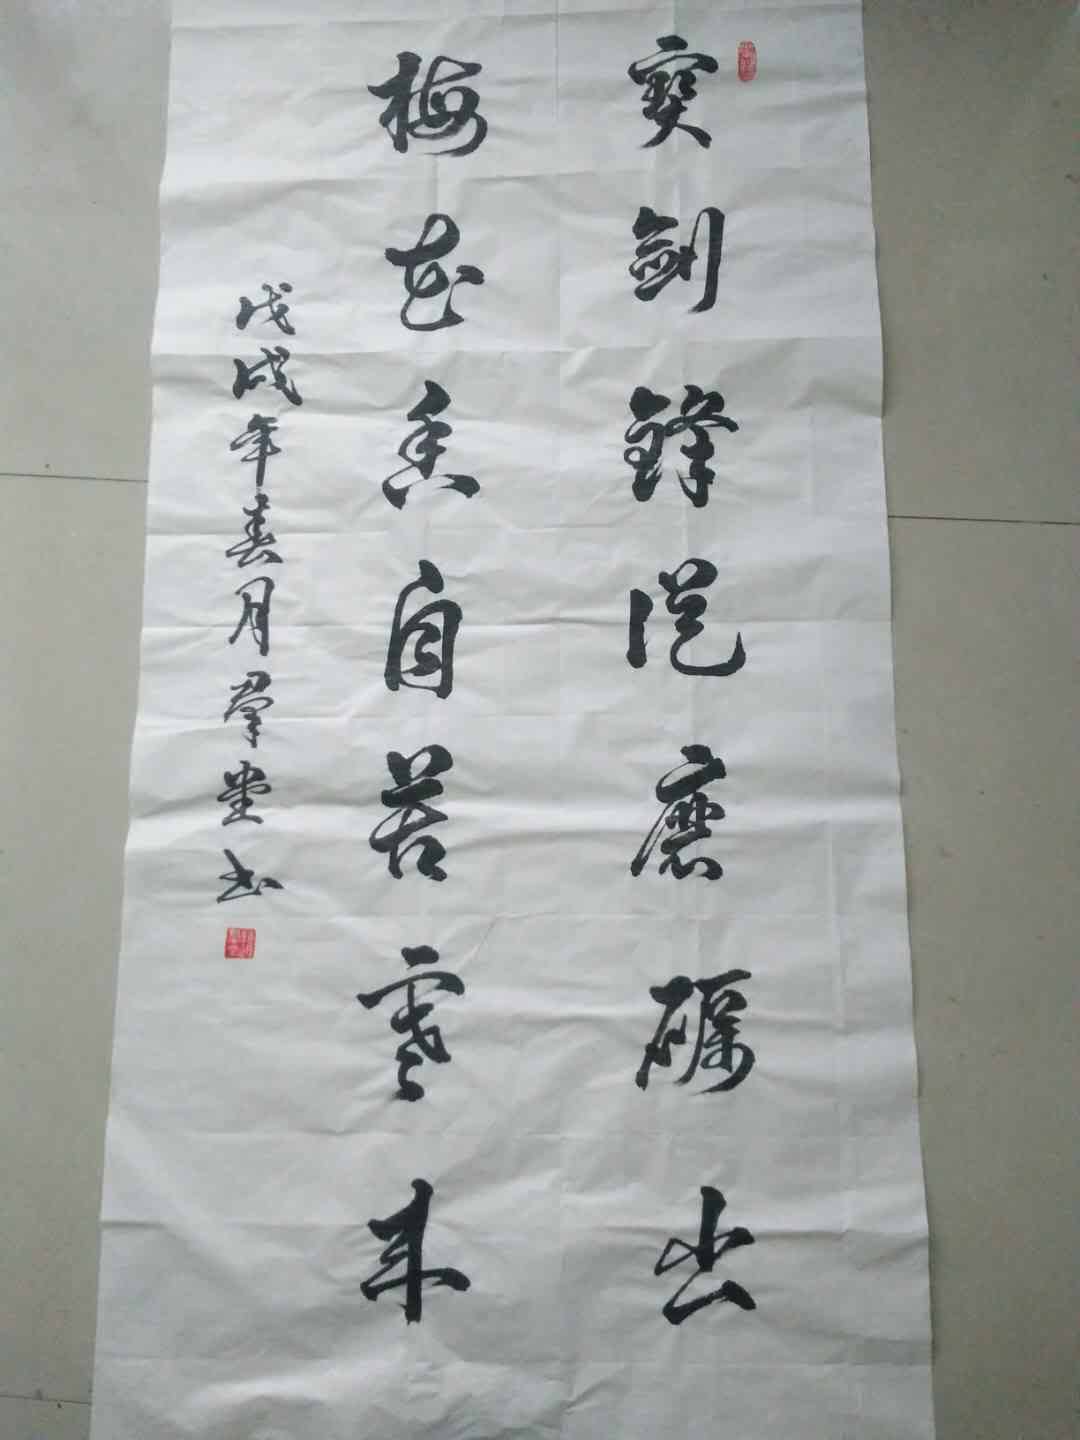 寶劍鋒從磨礪出
梅花香自苦寒来
戊戌年春月群堂书